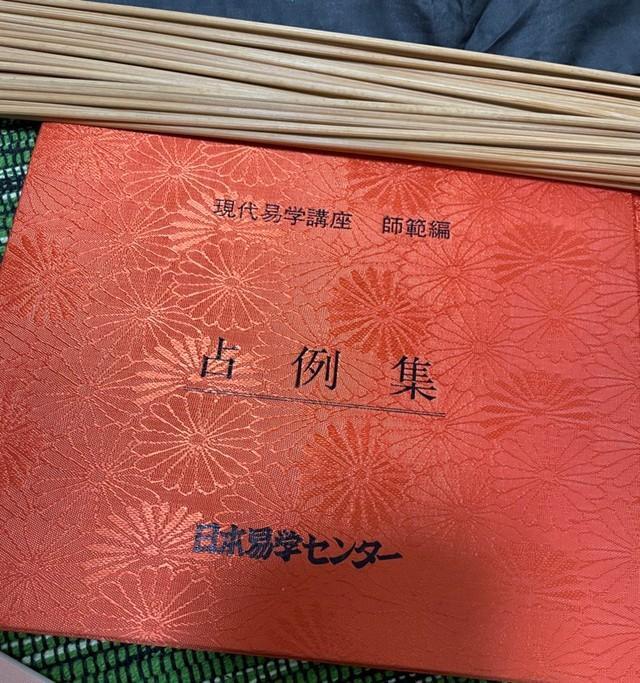 現代易学講座 師範編
占例集
日本易学センター